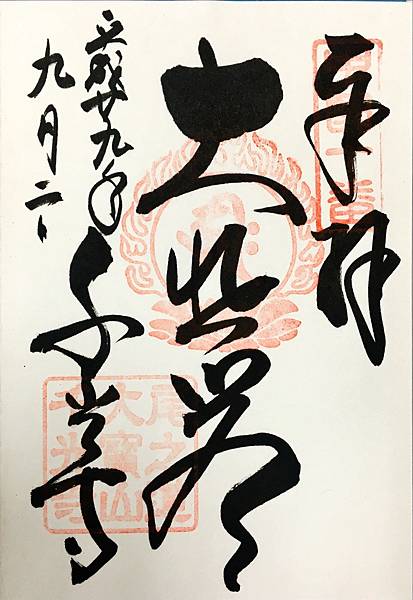 奉拝
大悲閣
平成廿九年
九月二日
千光寺
尾之道
大寳山
千光寺